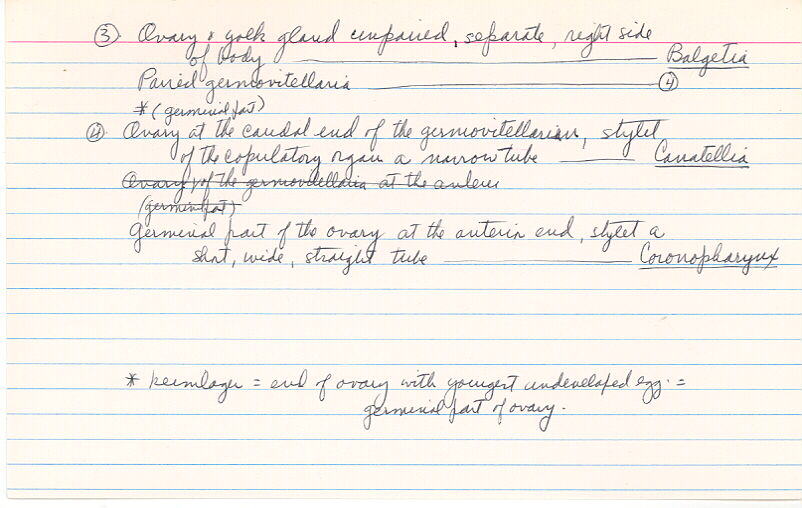 ③ Ovary & yolk gland unpaired, separate, right side
of body ——— Balgetia
Paired germovitellaria ——— ④
* (germinal part)
④ Ovary at the caudal end of the germovitellarium, stylet
of the copulatory organ a narrow tube —— Canatellia
Ovary of the germovitellaria at the anterior
(germinal part)
Germinal part of the ovary at the anterior end, stylet a
short, wide, straight tube ——— Coronopharynx
* keimlager = end of ovary with youngest undeveloped egg. =
germinal part of ovary.